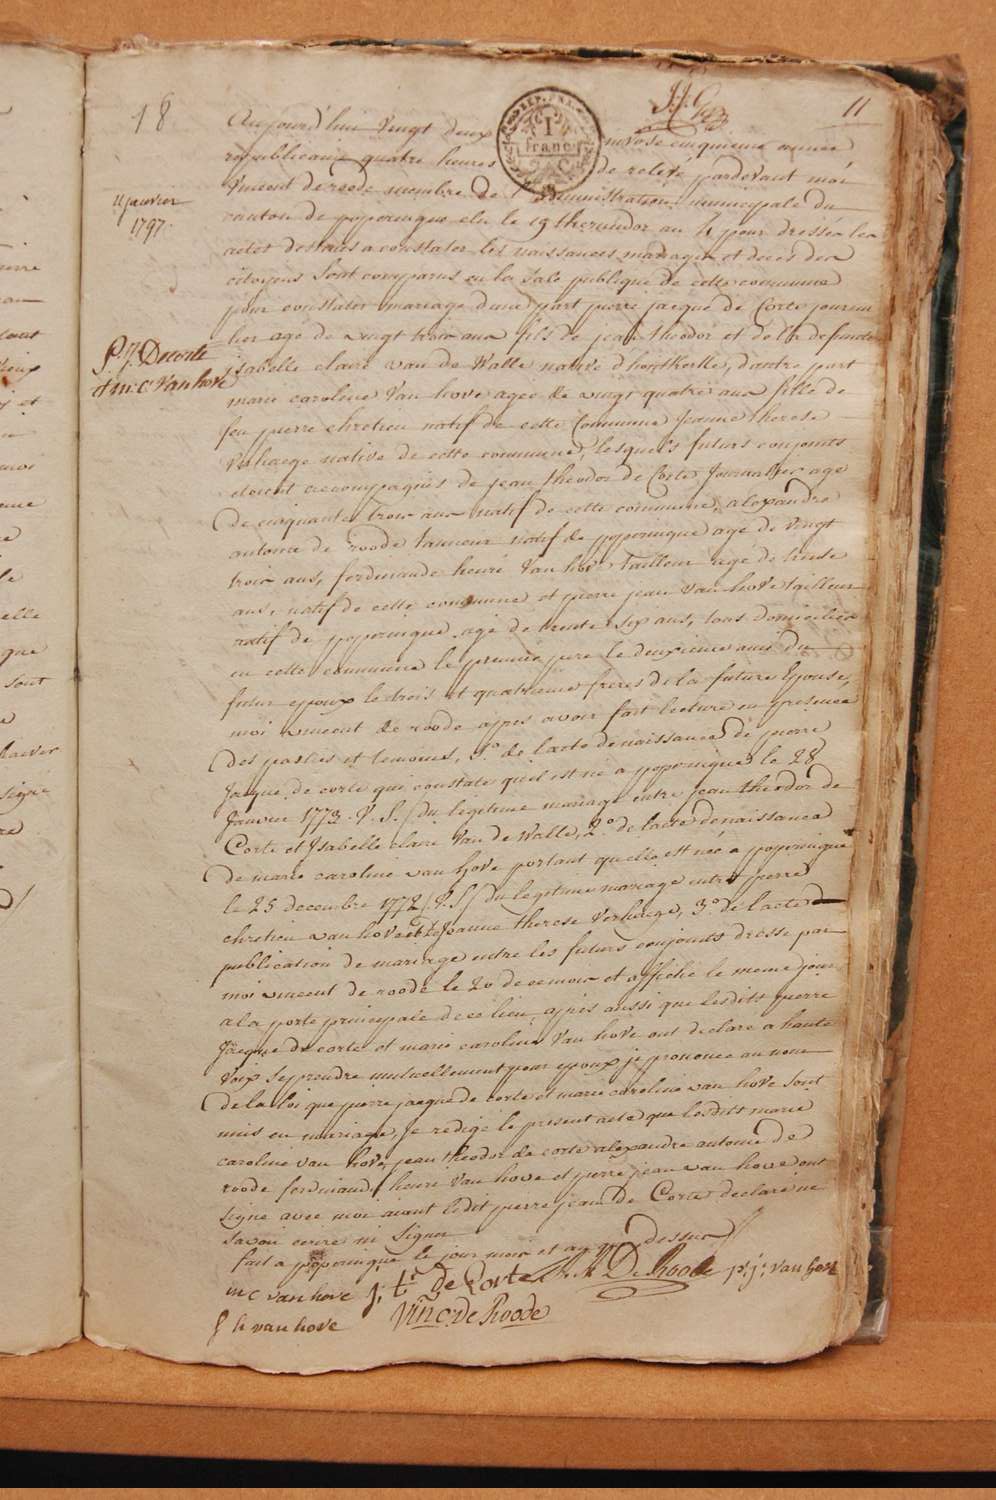 18
11
Aujourd'hui vingt deux nivose cinquieme année
REP. FRA.
1
franc
republicain quatre heures de relevé pardevant moi
11 janvier
1797.
vincent de roode membre de l'administration municipale du
canton de poperingue elu le 19 thermidor an 4 pour dresser les
actes destinés a constater les naissances mariages et deces des
citoyens sont comparus en la sale publique de cette commune
pour constater mariage dune part pierre jacque de Corte journa
P. J. Decorte
& m: C: Van hove
lier agé de vingt trois ans fils de jean theodor et de la defunte
jsabelle claire van de Walle native d'hontkerke, d'autre part
marie caroline Van hove agée de vingt quatre ans fille de
feu pierre chretien natif de cette Commune Jeanne therese
Verhaege native de cette commune, lesquels futurs conjoints
etoient accompagnés de jean theodor de Corte Journalier agé
De cinquante trois ans natif de cette commune, alexandre
antoine de roode tanneur natif de poperingue agé de vingt
trois ans, ferdinande henri Van hove tailleur agé de trente
ans, natif de cette commune et pierre jean Van hove tailleur
natif de poperingue agé de trente six ans, tous domiciliés
en cette commune le premier pere le deuxieme ami du
futur epoux le trois et quatrieme freres de la future Epouse,
moi vincent de roode apres avoir fait lecture en presence
Des parties et temoins, 1.° de lacte de naissance de pierre
Jacque de corte qui constate quil est né a poperingue le 28
Janvier 1773. V. S./ du legitime mariage entre jean theodor de
Corte et Jsabelle claire Van de Walle, 2.° de lacte de naissance
de marie caroline van hove portant quelle est née a poperingue
le 25 decembre 1772 /V.S/ du legitime mariage entre pierre
chretien van hove et Jeanne therese Verhaege, 3.° de lacte de
publication de mariage entre les futurs conjoints dressé par
moi vincent de roode le 20 de ce mois et affiché le meme jour
a la porte principale de ce lieu, apres aussi que lesdits pierre
Jacque de corte et marie caroline Van hove ont declaré a haute
Voix se prendre mutuellement pour epoux je prononce au nom
de la loi que pierre jacque de corte et marie caroline van hove sont
unis en mariage, je redigé le present acte que lesdits marie
caroline van hove, jean theodor de corte alexandre antoine de
roode ferdinand henri Van hove et pierre jean van hove ont
signé avec moi aiant ledit pierre jean de Corte declaré ne
savoir ecrire ni signer
fait a poperingue le jour mois et an que dessus
m c van hove j. t: de Corte De Roode p: j: van hove
f h van hove Vinc: de Roode